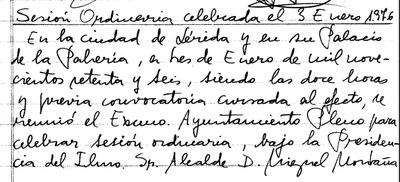 Sesión Ordinaria celebrada el 3 Enero 1976
En la ciudad de Lérida y en su Palacio
de la Pahería, a tres de Enero de mil nove-
cientos setenta y seis, siendo las doce horas
y previa convocatoria cursada al efecto, se
reunió el Excmo. Ayuntamiento Pleno para
celebrar sesión ordinaria, bajo la Presiden-
cia del Ilmo. Sr. Alcalde D. Miguel Montaña